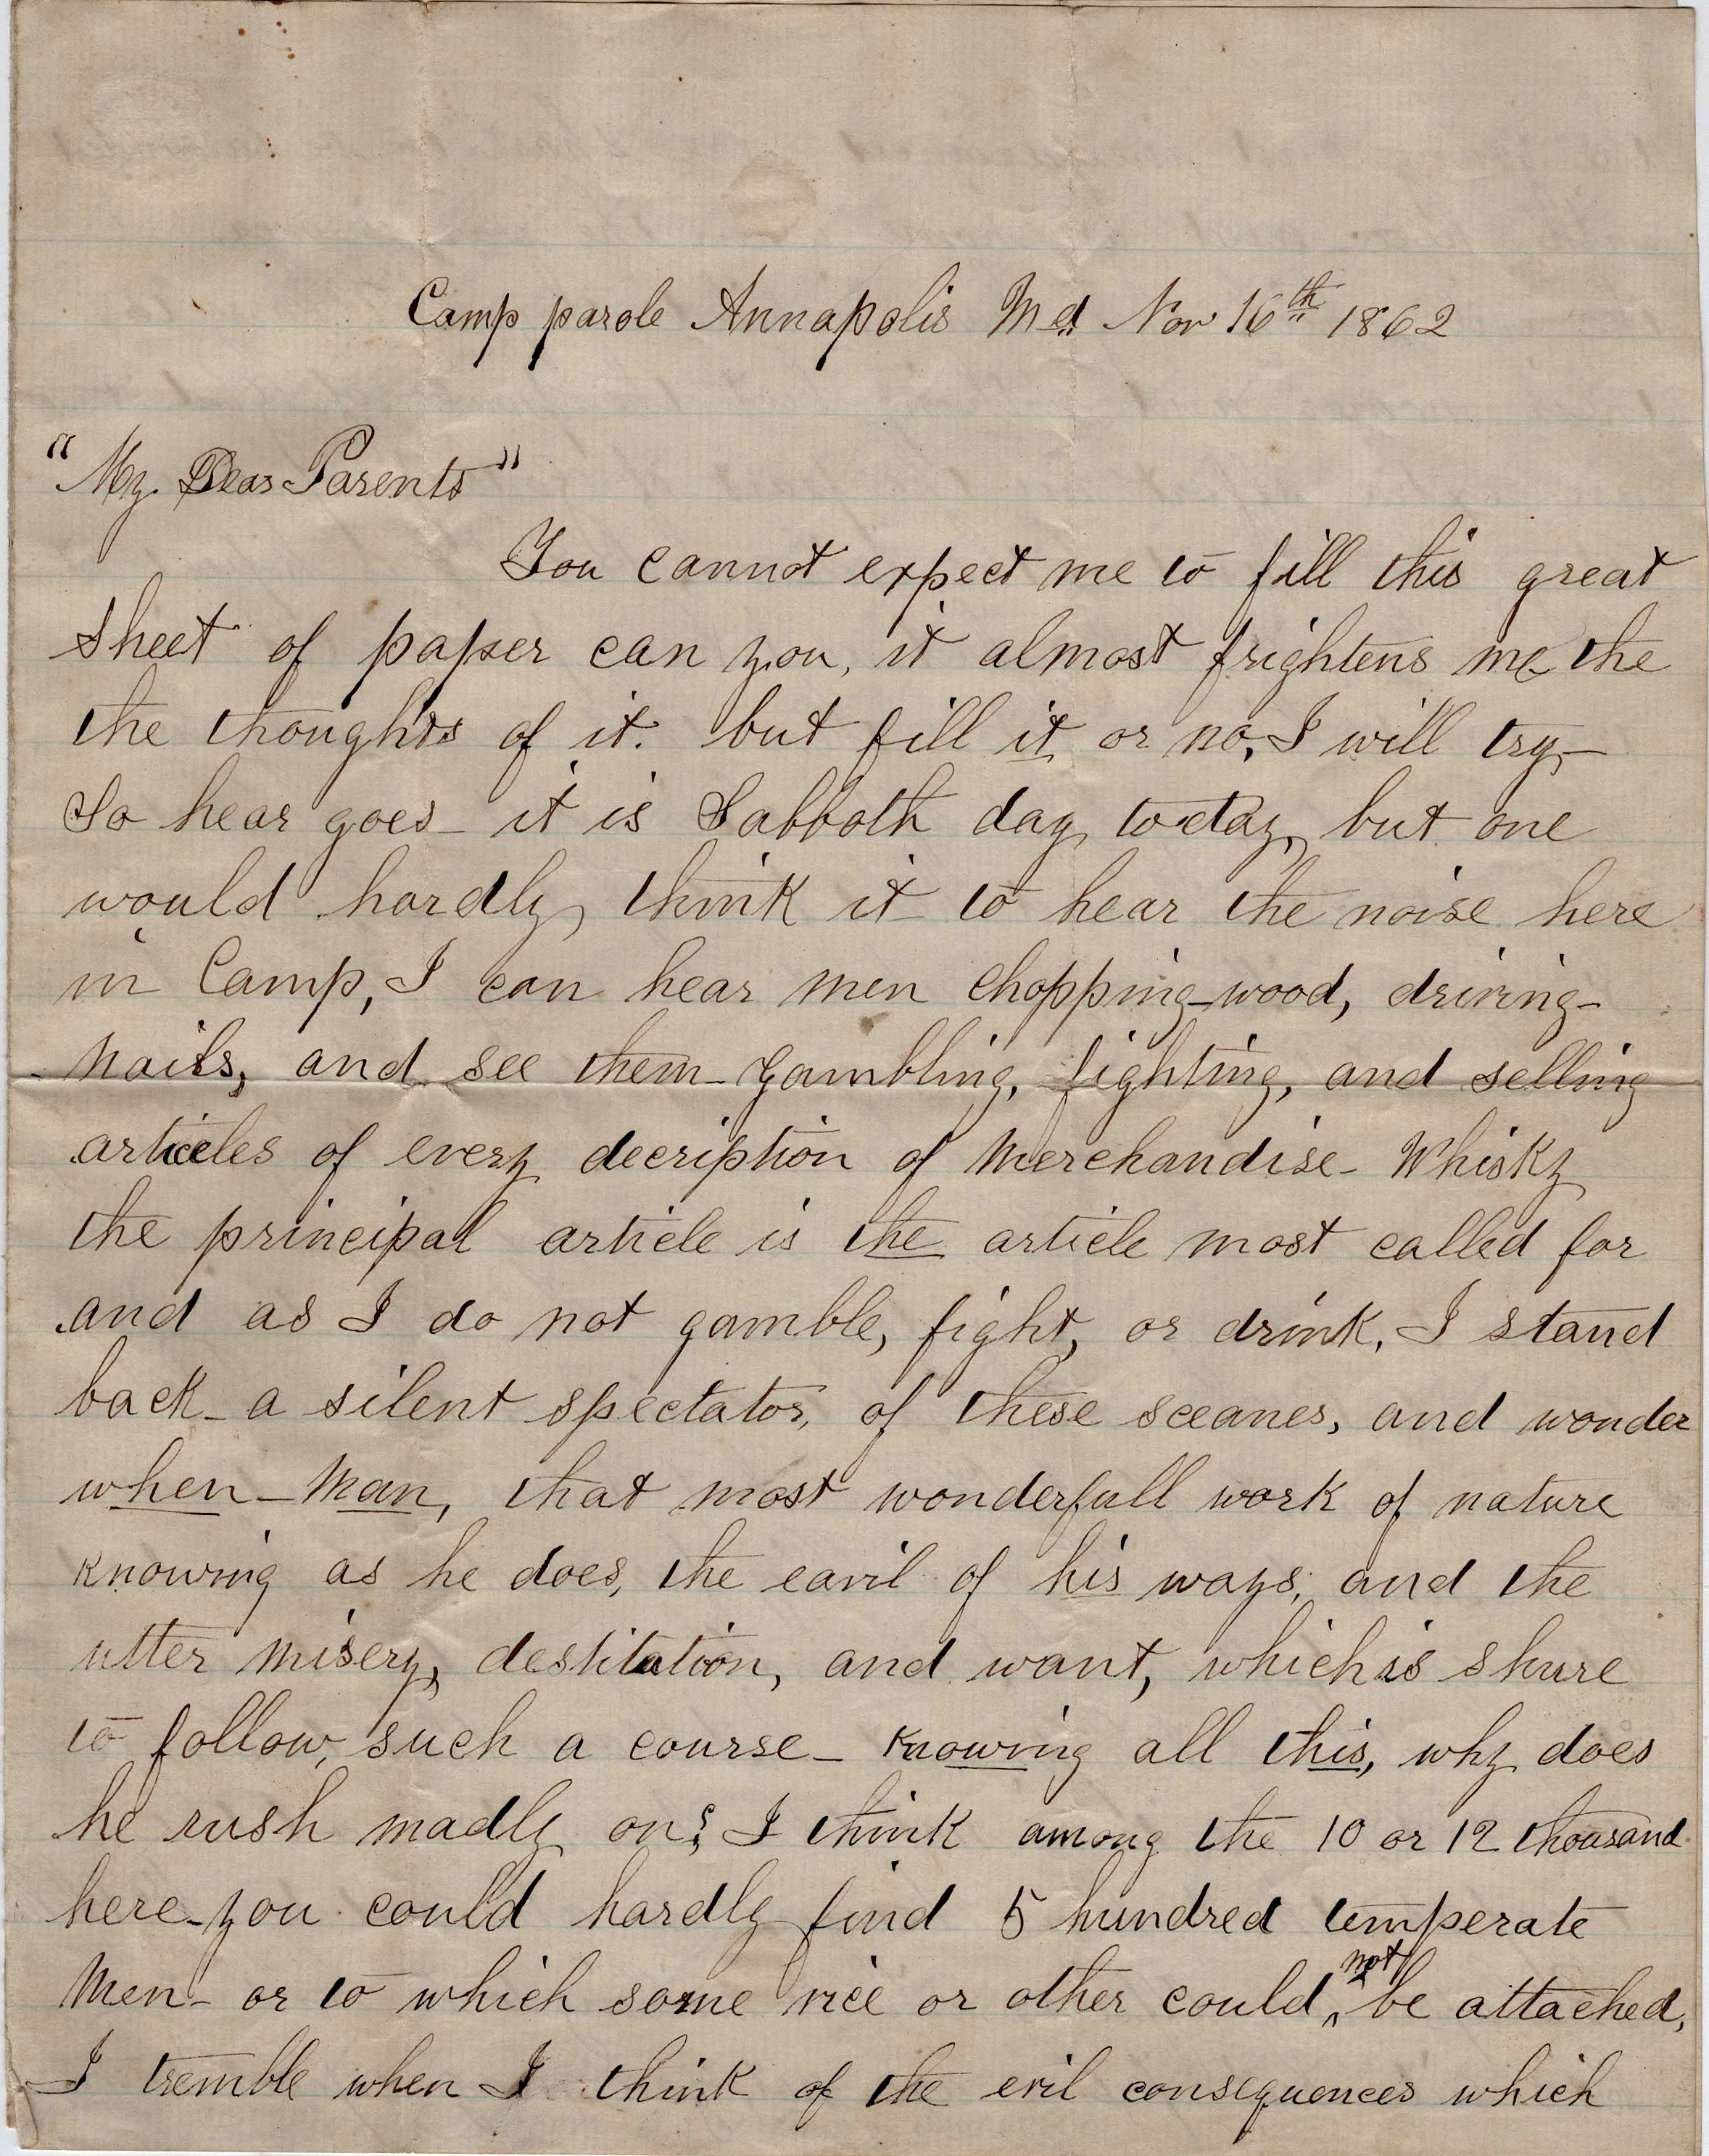 Camp parole Annapolis Md Nov 16th 1862
"My Dear Parents"
You cannot expect me to fill this great
sheet of paper can you, it almost frightens me the
the thoughts of it. but fill it or no, I will try—
So hear goes— it is Sabboth day to day, but one
would hardly think it to hear the noise here
in Camp, I can hear men chopping wood, driving—
nails, and see them gambling, fighting, and selling
articeles of every decription of Merchandise— Whisky
the principal article is the article most called for
and as I do not gamble, fight, or drink, I stand
back— a silent spectator, of these sceanes, and wonder
when— Man, that most wonderfull work of nature
knowing as he does, the eavil of his ways, and the
utter misery, destitution, and want, which is shure
to follow, such a course— knowing all this, why does
he rush madly on? I think among the 10 or 12 thousand
here— you could hardly find 5 hundred temperate
Men— or to which some vice or other could not be attached,
I tremble when I think of the evil consequences which